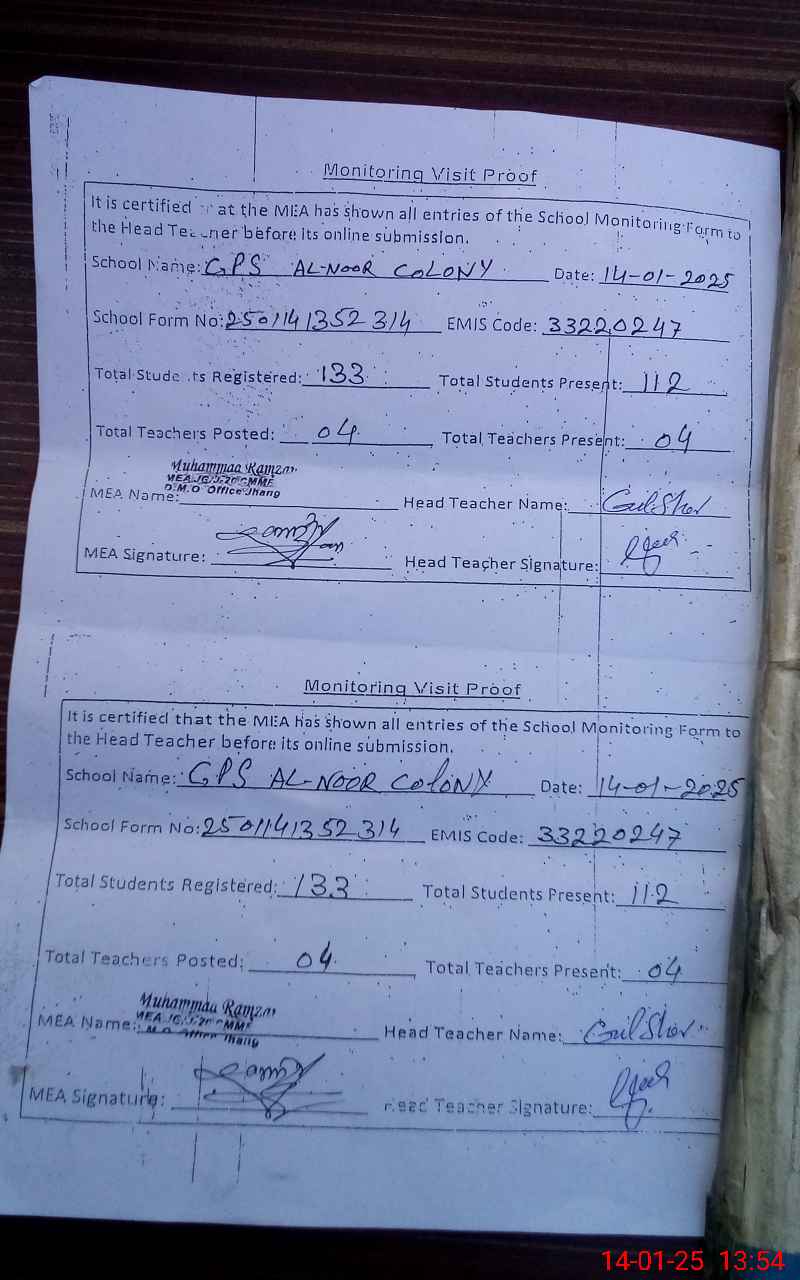 Monitoring Visit Proof
It is certified at the MEA has shown all entries of the School Monitoring Form to
the Head Teacher before its online submission.
School Name: GPS AL-NOOR COLONY Date: 14-01-2025
School Form No: 2501141352314 EMIS Code: 33220247
Total Students Registered: 133 Total Students Present: 112
Total Teachers Posted: 04 Total Teachers Present: 04
Muhammad Ramzan
D.M.O Office Jhang
MEA Name: Head Teacher Name: Gul Sher
MEA Signature: Head Teacher Signature:
Monitoring Visit Proof
It is certified that the MEA has shown all entries of the School Monitoring Form to
the Head Teacher before its online submission.
School Name: GPS AL-NOOR COLONY Date: 14-01-2025
School Form No: 2501141352314 EMIS Code: 33220247
Total Students Registered: 133 Total Students Present: 112
Total Teachers Posted: 04 Total Teachers Present: 04
Muhammad Ramzan
MEA Name: Office Jhang Head Teacher Name: Gul Sher
MEA Signature: Head Teacher Signature:
14-01-25 13:54